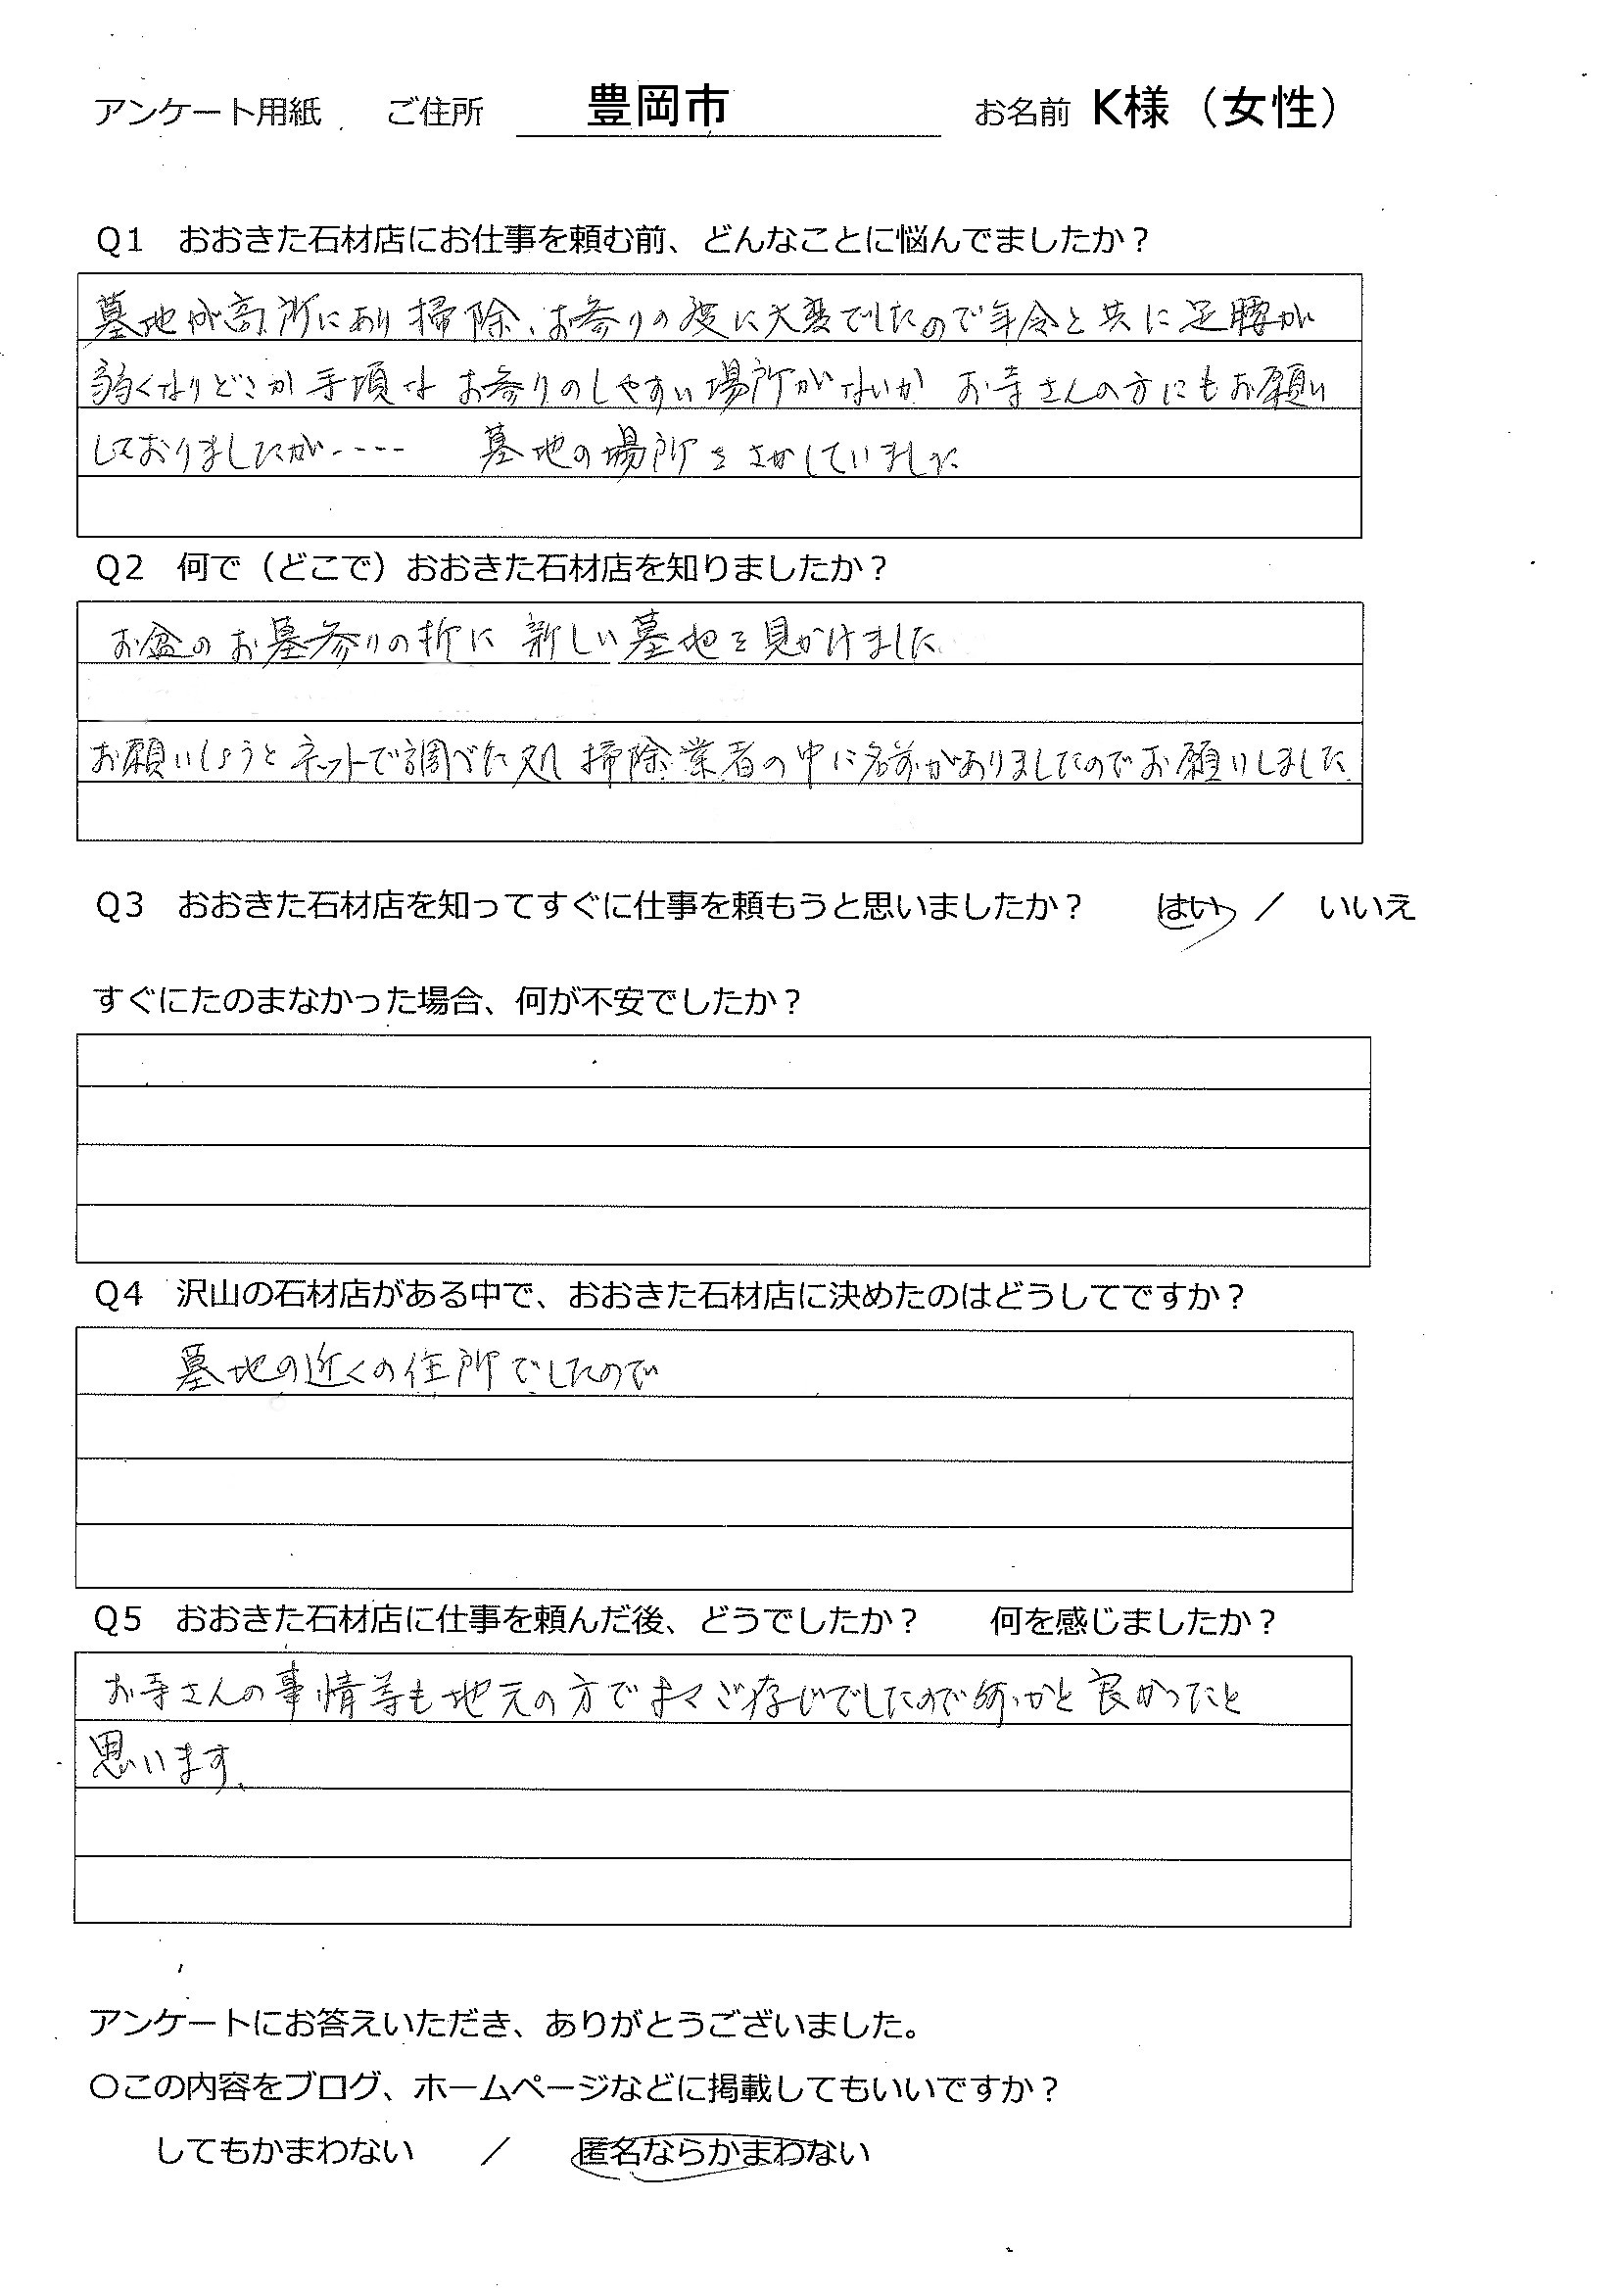 アンケート用紙 ご住所 豊岡市 お名前 K様（女性）
Q1 おおきた石材店にお仕事を頼む前、どんなことに悩んでましたか？
墓地が高所にあり掃除、お参りの度に大変でしたので年令と共に足腰が
弱くなりどこか手頃なお参りのしやすい場所がないか お寺さんの方にもお願い
しておりましたが‥‥ 墓地の場所をさがしていました
Q2 何で（どこで）おおきた石材店を知りましたか？
お盆のお墓参りの折に 新しい墓地を見かけました
お願いしようとネットで調べた処 掃除業者の中に名前がありましたのでお願いしました
Q3 おおきた石材店を知ってすぐに仕事を頼もうと思いましたか？ はい ／ いいえ
すぐにたのまなかった場合、何が不安でしたか？
Q4 沢山の石材店がある中で、おおきた石材店に決めたのはどうしてですか？
墓地の近くの住所でしたので
Q5 おおきた石材店に仕事を頼んだ後、どうでしたか？ 何を感じましたか？
お寺さんの事情等も地元の方で ご存じでしたので何かと良かったと
思います。
アンケートにお答えいただき、ありがとうございました。
〇この内容をブログ、ホームページなどに掲載してもいいですか？
してもかまわない ／ 匿名ならかまわない